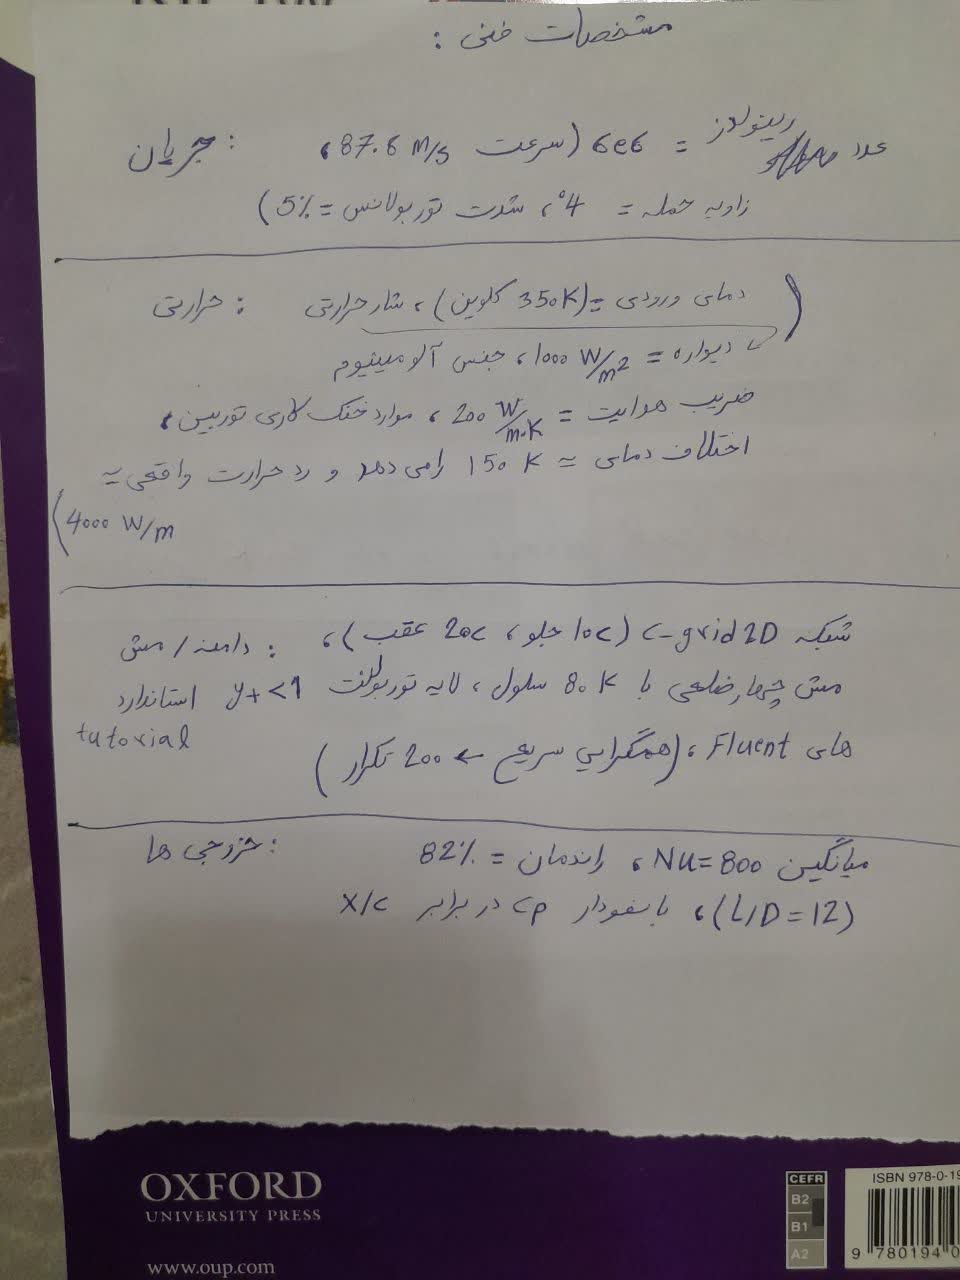 مشخصات فنی :
جریان : عدد رینولدز = 6e6 (سرعت 87.6 M/s ،
زاویه حمله = 4° ، شدت توربولانس = 5%)
حرارتی : (دمای ورودی = (350K کلوین) ، شار حرارتی
دیواره = 1000 W/m2 ، جنس آلومینیوم
ضریب هدایت = 200 W/m.K ، موارد خنک کاری توربین ،
اختلاف دمای = 150 K را می دهد و رد حرارت واقعی =
4000 W/m)
دامنه / مش : شبکه C-grid 2D (10c جلو ، 20c عقب) ،
مش چهارضلعی با 80K سلول ، لایه توربولنت y+<1 استاندارد
tutorial
های Fluent ، (همگرایی سریع ← 200 تکرار)
خروجی ها : میانگین Nu=800 ، راندمان = 82%
(L/D=12) ، با نمودار cp در برابر x/c
OXFORD
UNIVERSITY PRESS
www.oup.com
CEFR
B2
B1
A2
ISBN 978-0-19
9 780194 0